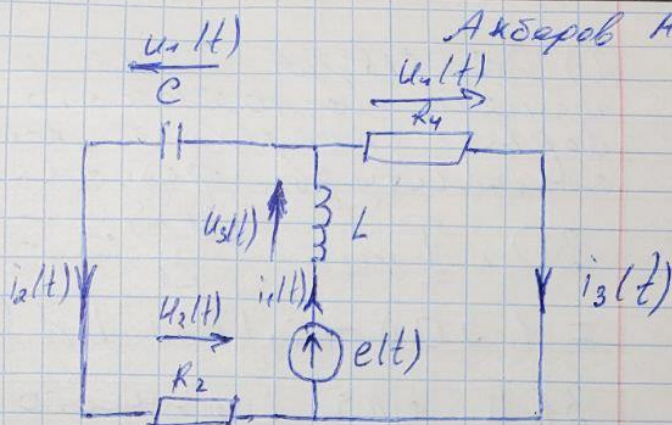 Акбаров
u₁(t)
C
u₄(t)
R₄
u₃(t)
L
i₂(t)
i₁(t)
i₃(t)
u₂(t)
e(t)
R₂